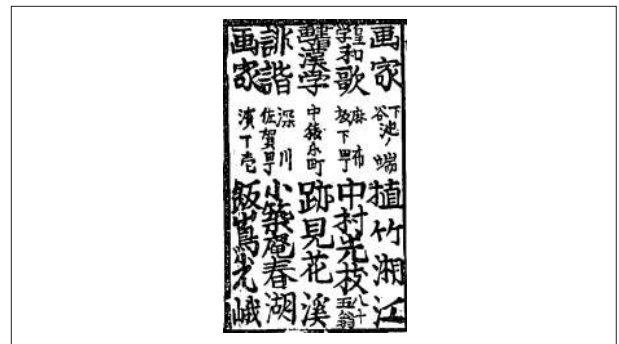 画家 下谷池ノ端 植竹湘江
皇学和歌 麻布坂下甼 中村光枝 八十五翁
書画漢学 中猿楽町 跡見花溪
誹諧 深川佐賀甼 小築庵春湖
画家 濱丁壱 飯嶌光峨